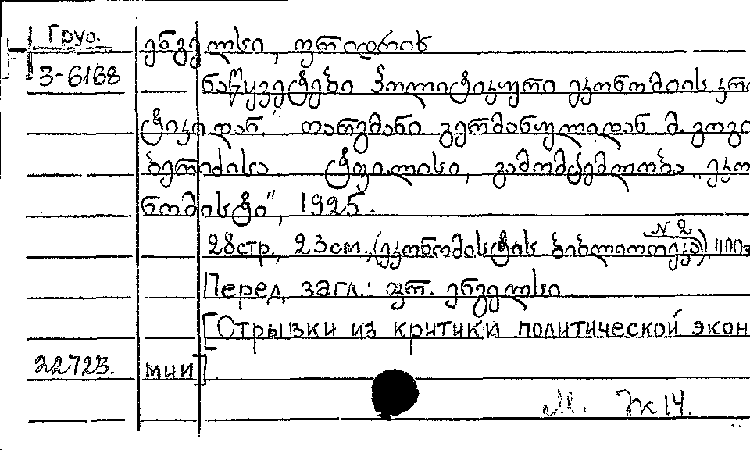 Груз. ენგელსი, ფრიდრიხ
3-6168 ნაწყვეტები პოლიტიკური ეკონომიის კრი
ტიკიდან. თარგმანი გერმანულიდან მ. გოგი
ბერიძისა ტფილისი, გამომცემლობა „ეკო
ნომისტი", 1925.
28стр., 23см., (ეკონომისტის ბიბლიოთეკა) N 2 1100э
Перед загл.: ფრ. ენგელსი
[Отрывки из критики политической эконо
22723. мии]
М. Ж 14.